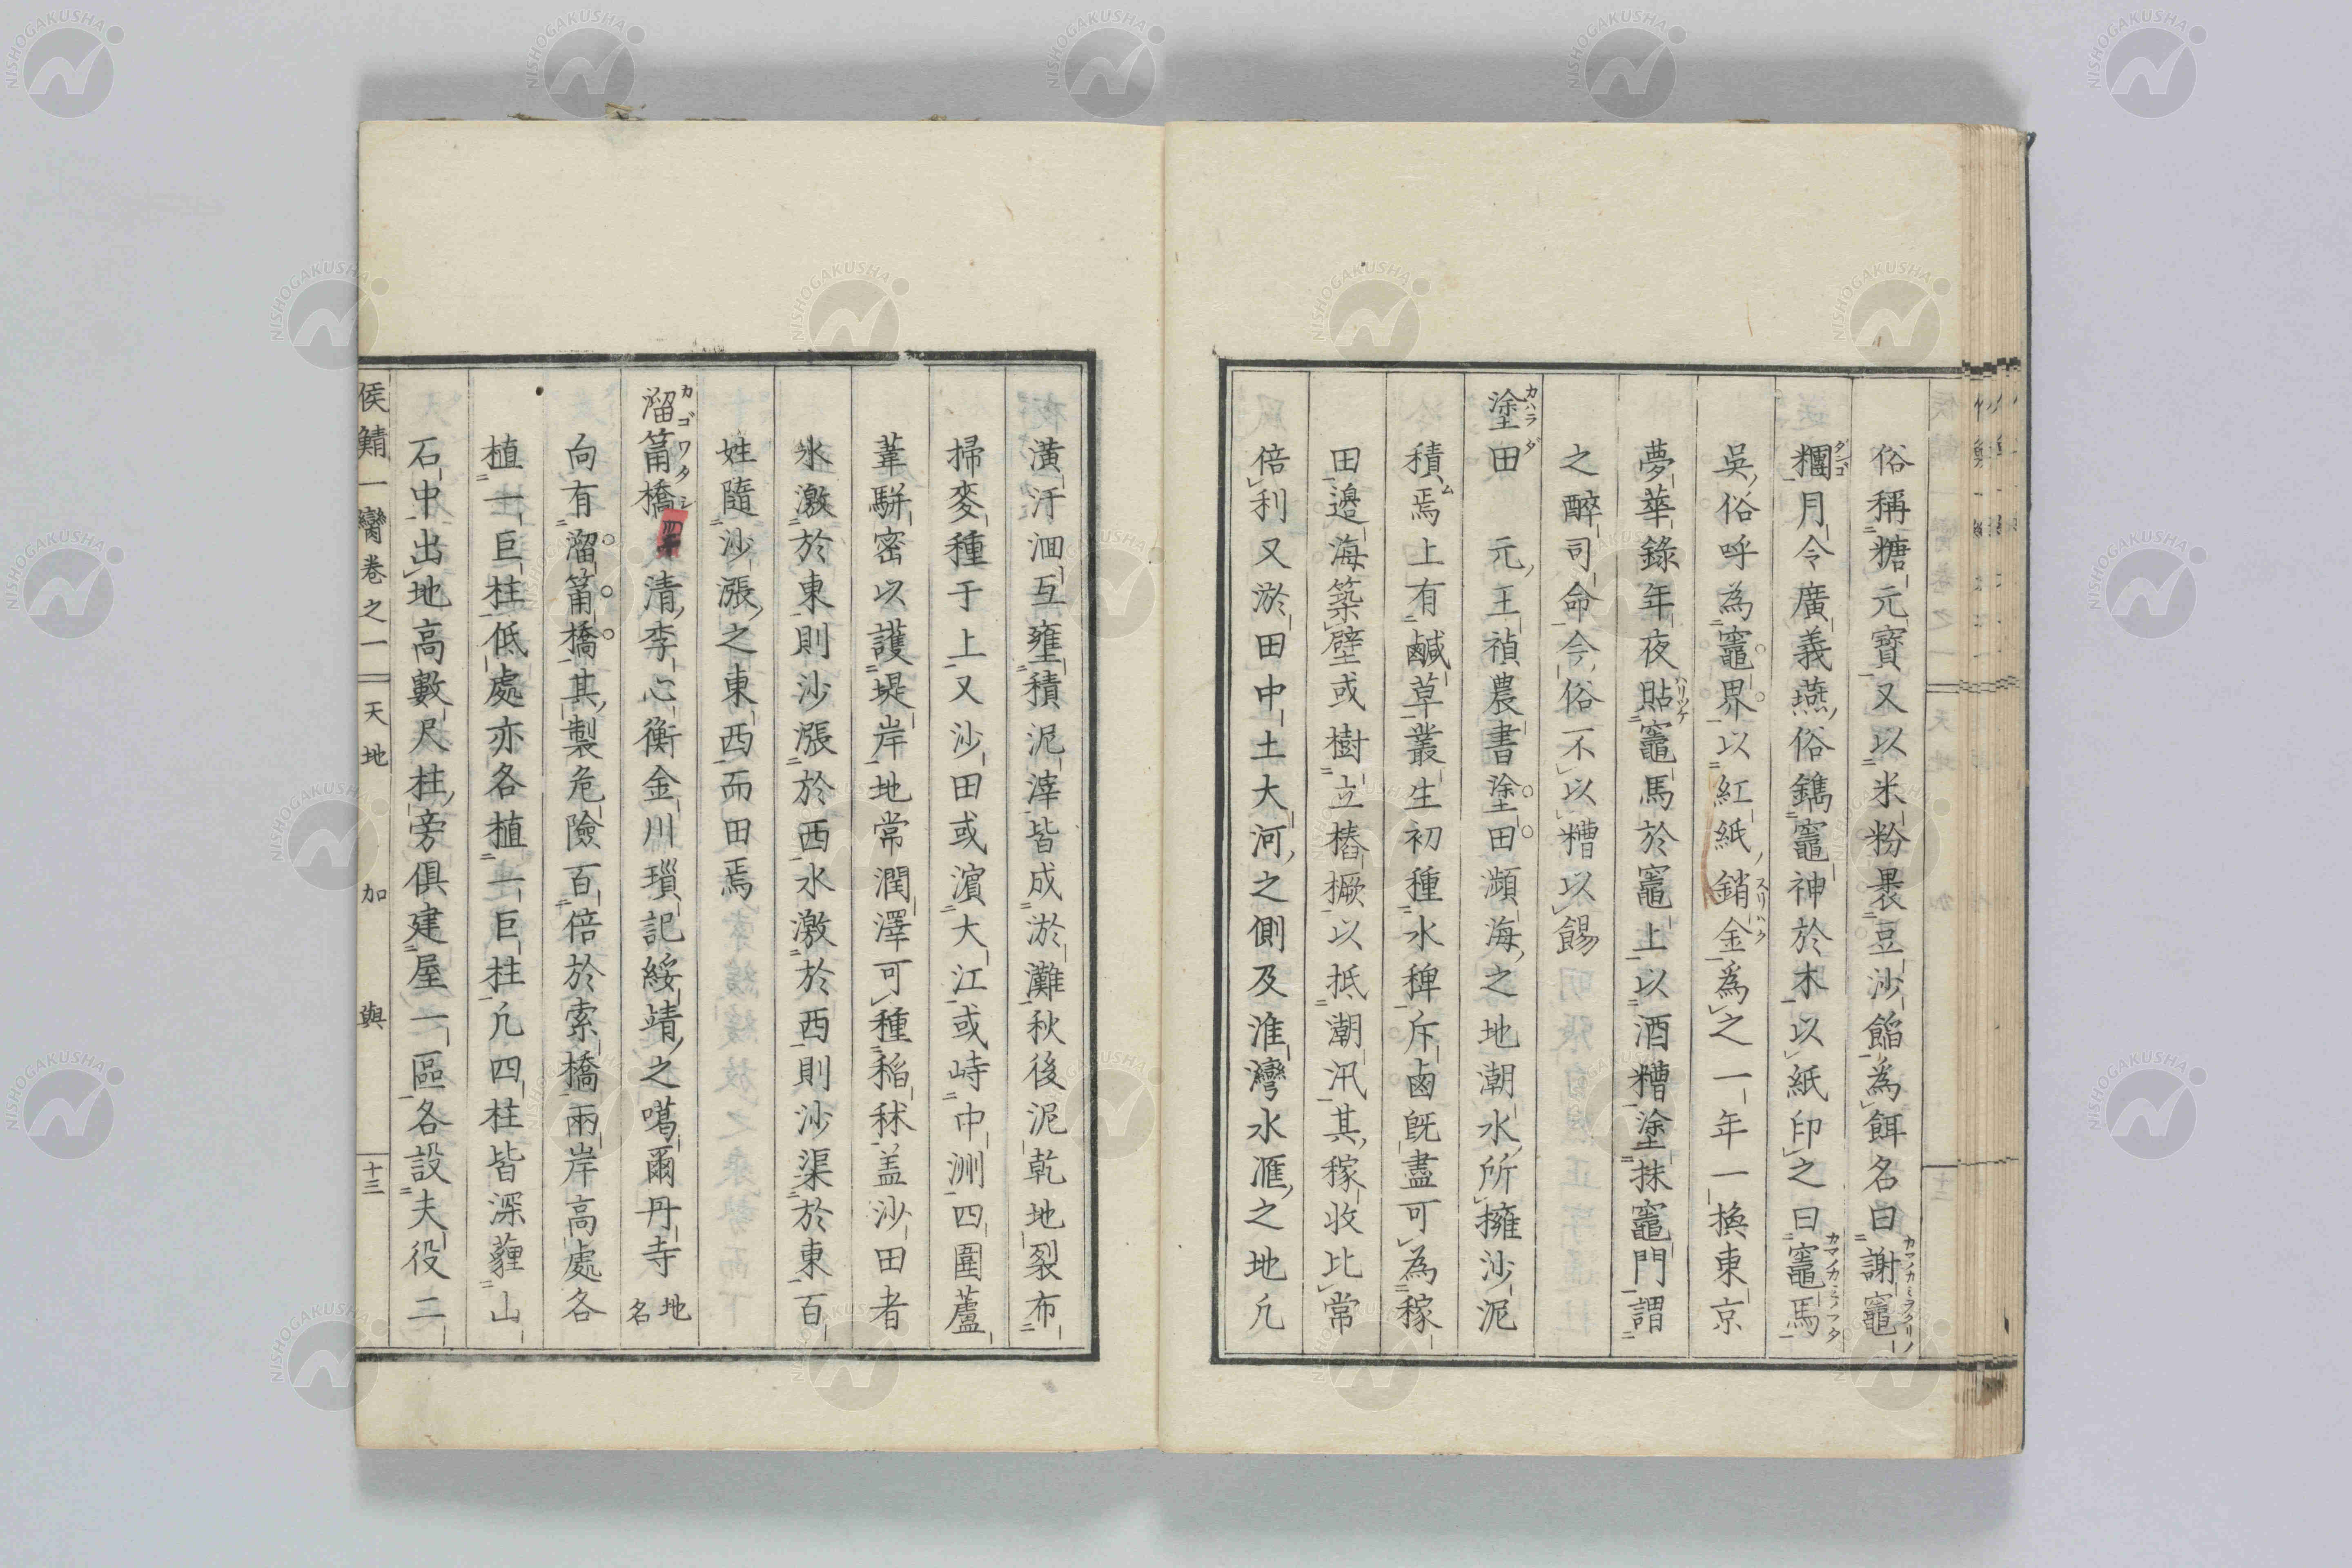 俗稱糖元寶又以米粉裹豆沙餡為餌名曰謝竈
糰月令廣義燕俗鐫竈神於木以紙印之曰竈馬
吳俗呼為竈界以紅紙銷金爲之一年一換東京
夢華錄年夜貼竈馬於竈上以酒糟塗抹竈門謂
之醉司命今俗不以糟以餳
塗田 元王禎農書塗田瀕海之地潮水所擁沙泥
積焉上有鹹草叢生初種水稗斥鹵既盡可為稼
田邊海築壁或樹立樁橛以抵潮汛其稼收比常
倍利又淤田中土大河之側及淮灣水滙之地凢
潢汙洄互壅積泥滓皆成淤灘秋後泥乾地裂布
掃麥種于上又沙田或濵大江或峙中洲四圍蘆
葦駢密以護堤岸地常潤澤可種稻秫盖沙田者
水激於東則沙漲於西水激於西則沙渠於東百
姓隨沙漲之東西而田焉
溜筩橋 清李心衡金川瑣記綏靖之噶爾丹寺地名
向有溜筩橋其製危險百倍於索橋兩岸高處各
植一巨柱低處亦各植一巨柱凢四柱皆深薶山
石中出地高數尺柱旁俱建屋一區各設夫役二
侯鯖一臠卷之一 天地 加 與 十三
カマノカミマツリノ
ダンゴ
カマノカミノフダ
スリハク
ハリツケ
カハラダ
カゴワタシ
NISHOGAKUSHA